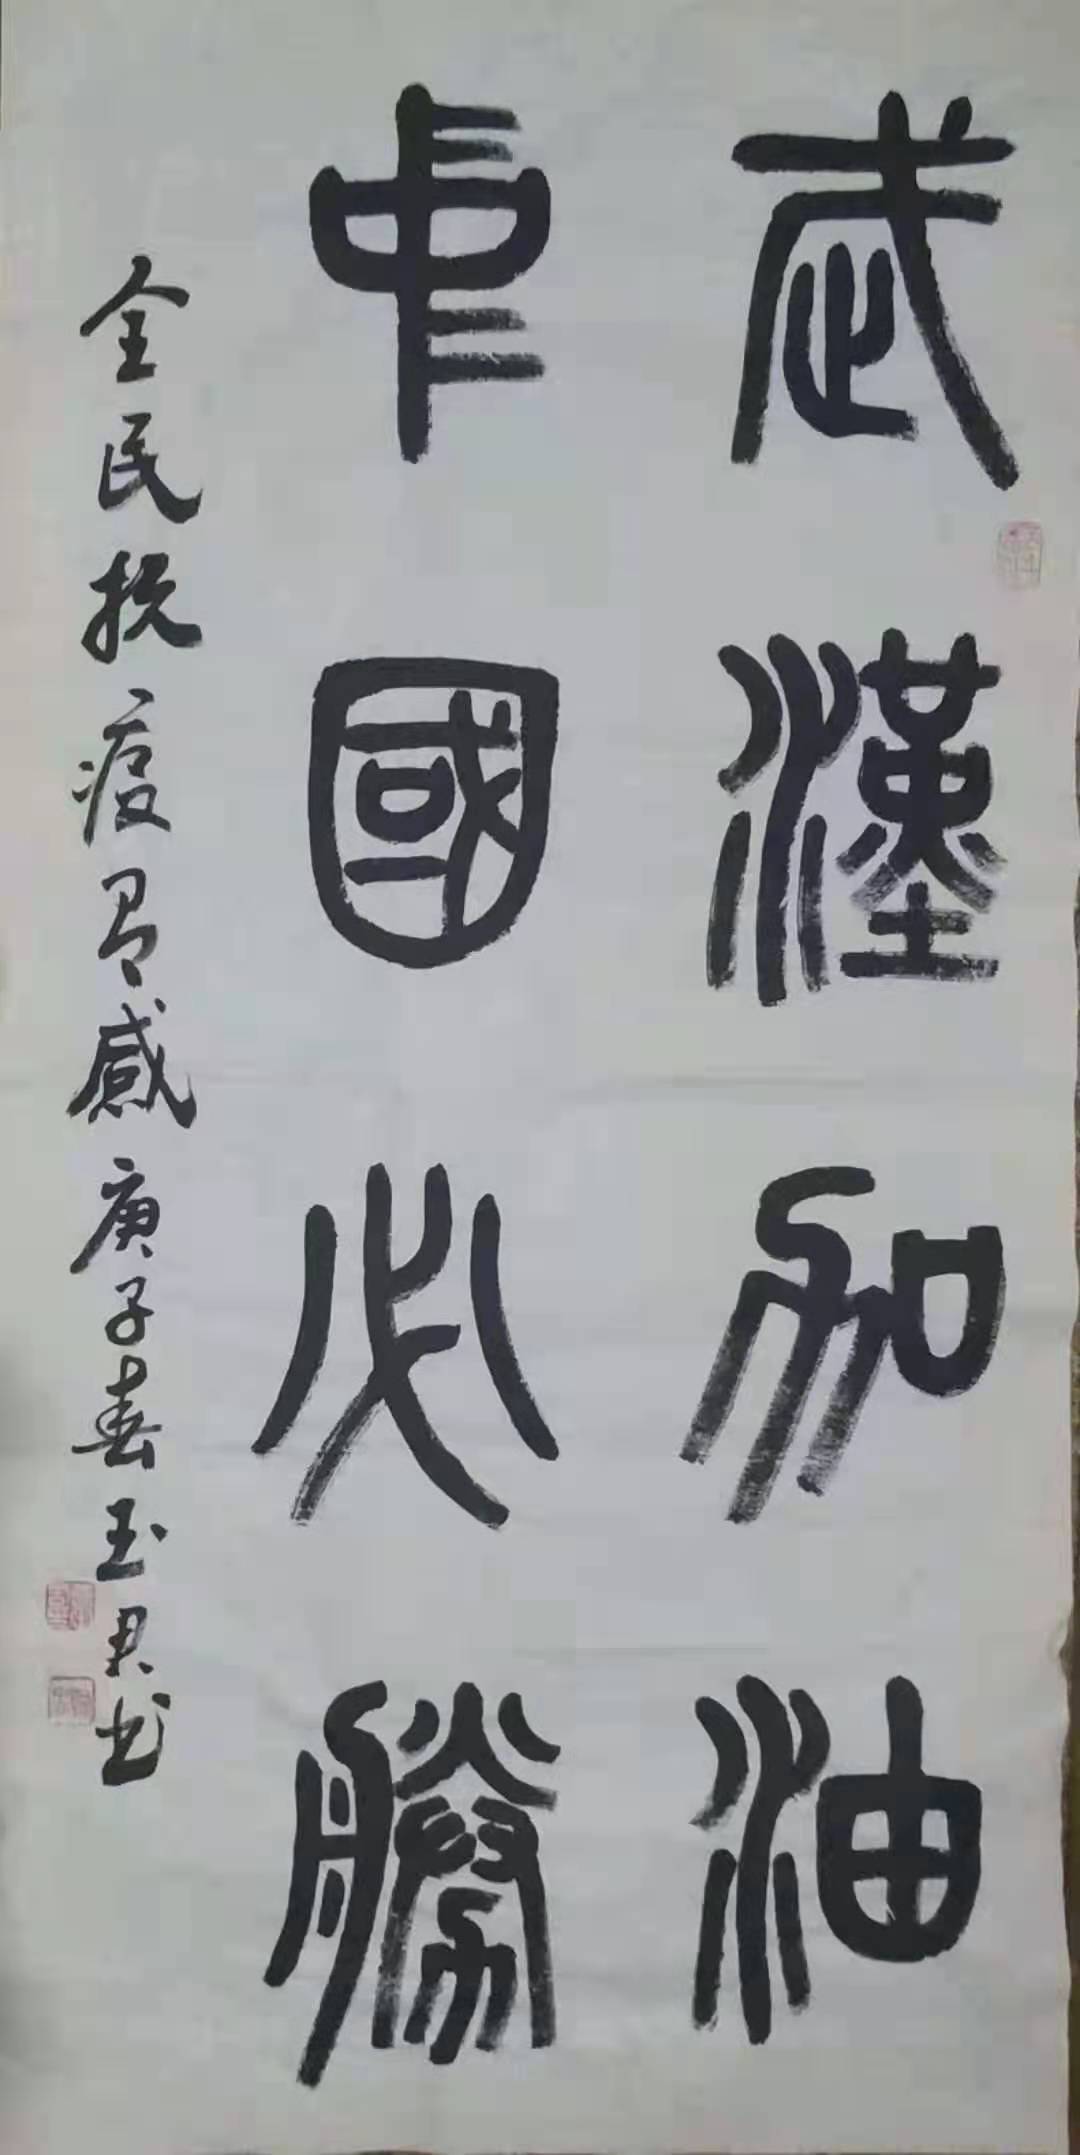 武漢加油
中國必勝
全民抗疫有感庚子春玉君书